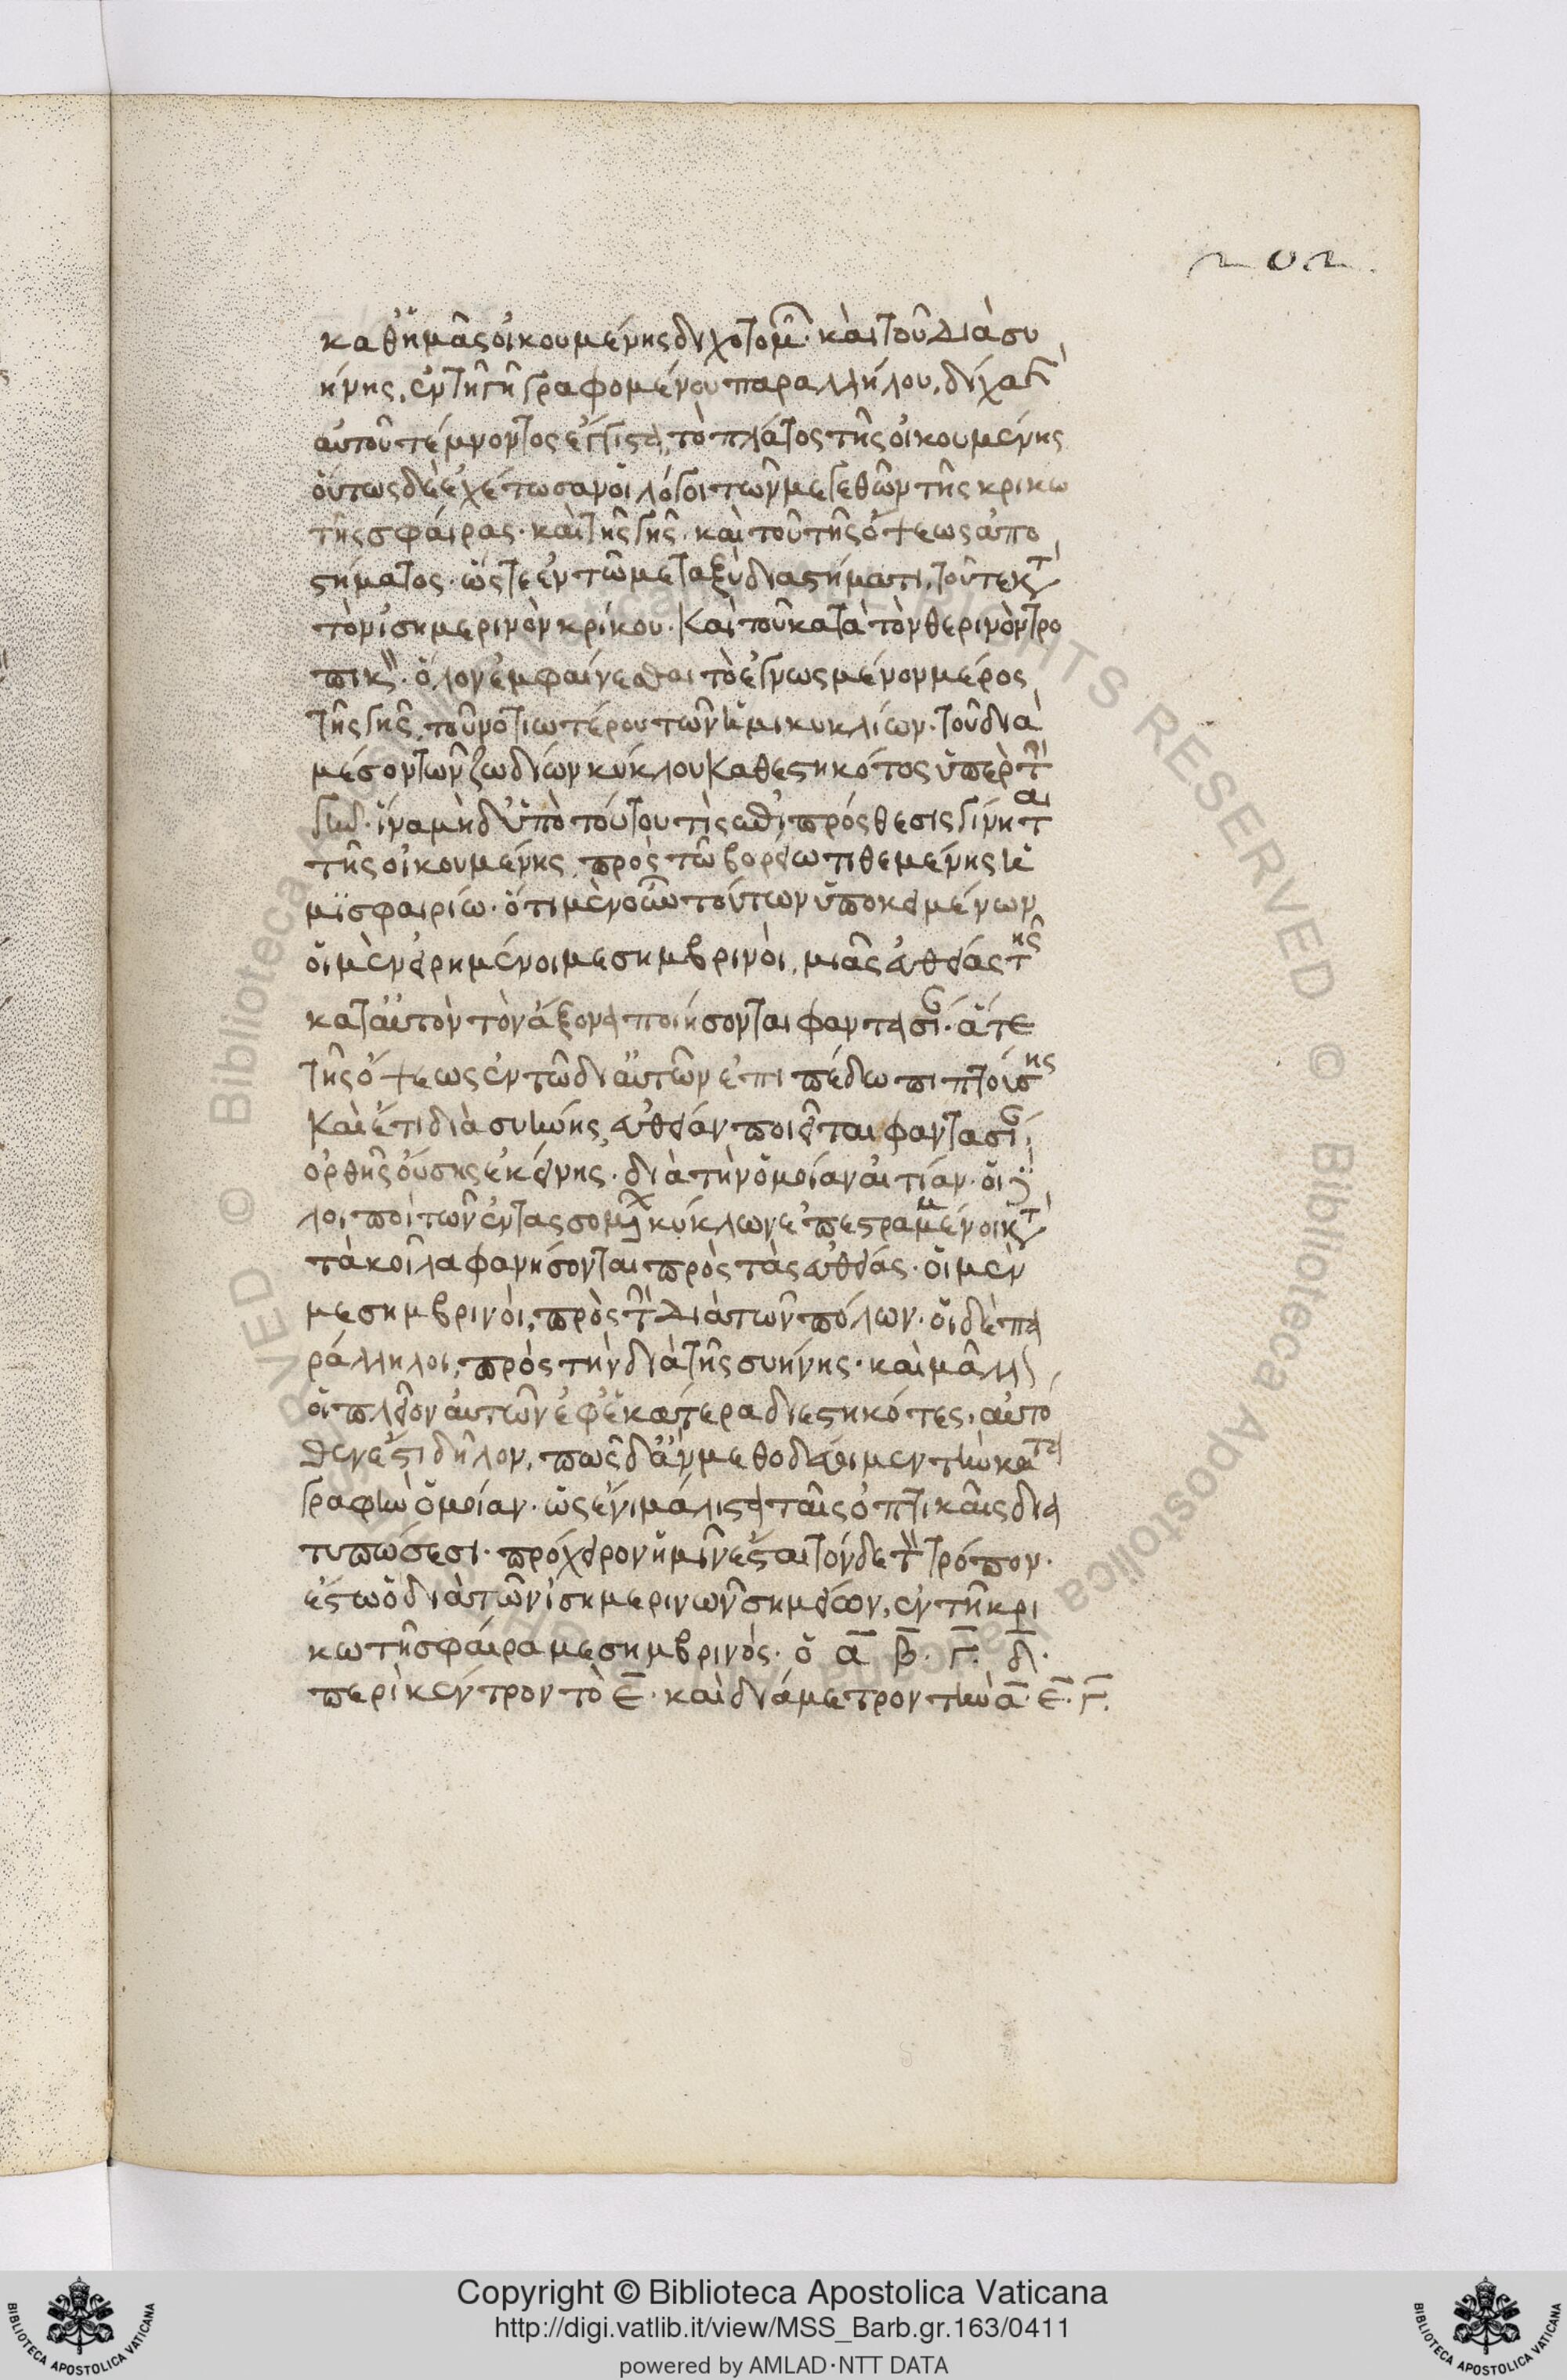 202
καθ' ἡμᾶς οἰκουμένης διχοτομ καὶ τοῦ διὰ συ
ήνης, ἐν τῆ γῆ γραφομένου παραλλήλου, δίχα
αὐτοῦ τέμνοντος ἔγγιστα, τὸ πλάτος τῆς οἰκουμένης
οὕτως δὲ ἐχέτωσαν οἱ λόγοι τῶν μεγεθῶν τῆς κρικω
τῆς σφαίρας· καὶ τῆς γῆς· καὶ τοῦ τῆς ὄψεως ἀπο
στήματος· ὥστε ἐν τῶ μεταξὺ διαστήματι, τοῦτε κτ
τὸν ἰσημερινὸν κρίκου· καὶ τοῦ κατὰ τὸν θερινὸν τρο
πικ· ὅλον ἐμφαίνεσθαι τὸ ἐγνωσμένον μέρος
τῆς γῆς, τοῦ νοτιωτέρου τῶν ἡμικυκλίων· τοῦ διὰ
μέσον τῶν ζωδίων κύκλου καθεστηκότος ὑπὲρ τ
γῆν· ἵνα μὴ δ' ὑπὸ τούτου τὶς πρόσθεσις γίνηται
τῆς οἰκουμένης, πρὸς τῶ βορείω τιθεμένης ἡ
μισφαιρίω· ὅτι μὲν οὖν τούτων ὑποκειμένων
οἱ μὲν εἰρημένοι μεσημβρινοὶ, μιᾶς εὐθείας τῆς
κατ' αὐτὸν τὸν ἄξονα ποιήσονται φαντασί· ἅτε
τῆς ὄψεως ἐν τῶ δι' αὐτῶν ἐπιπέδω πιπτούσης
καὶ ἔτι διὰ συήνης, εὐθείαν ποιεῖται φαντασί
ὀρθῆς οὔσης ἐκείνης· διὰ τὴν ὁμοίαν αἰτίαν· οἱ
λοιποὶ τῶν ἐντασσομ κύκλων ἐπεστραμμένοι κτ
τὰ κοῖλα φανήσονται πρὸς τὰς εὐθείας· οἱ μὲν
μεσημβρινοὶ, πρὸς τ διὰ τῶν πόλων· οἱ δὲ πα
ράλληλοι, πρὸς τὴν διὰ τῆς συήνης· καὶ μᾶλλ
οἱ πλεῖον αὐτῶν ἐφ' ἑκάτερα διεστηκότες, αὐτό
θεν ἐστὶ δῆλον, πῶς δ' ἂν μεθοδεύοιμεν τὴν κατα
γραφὴν ὁμοίαν· ὡς ἔνι μάλιστα ταῖς ὀπτικαῖς δια
τυπώσεσι· πρόχειρον ἡμῖν ἔσται τόνδε τ τρόπον·
ἔστω ὁ διὰ τῶν ἰσημερινῶν σημείων, ἐν τῆ κρι
κωτῆ σφαίρα μεσημβρινός· ὁ α β· γ· δ·
περὶ κέντρον τὸ ε· καὶ διάμετρον τὴν α· ε· γ·
Copyright © Biblioteca Apostolica Vaticana
http://digi.vatlib.it/view/MSS_Barb.gr.163/0411
powered by AMLAD·NTT DATA